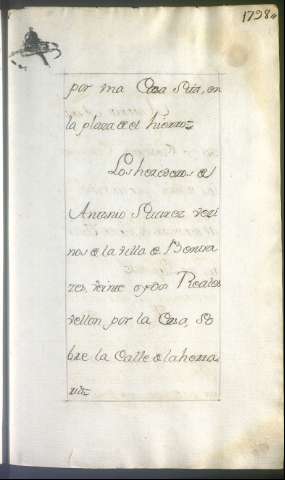 1798
por una Casa Sita, en
la plaza de el hierro=
Los herederos de
Antonio Suarez vezi
nos de la villa de
zes, veinte o Reales
vellon, por la Casa, So
bre la Calle de la herra